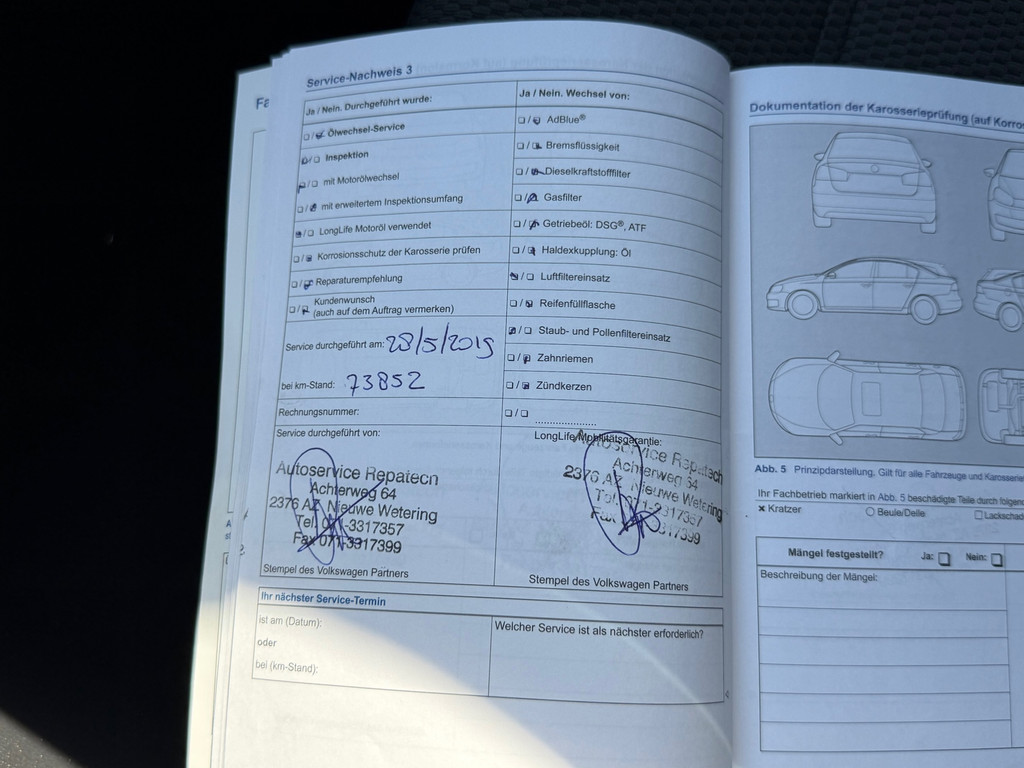 Fa
Service-Nachweis 3
Ja / Nein. Durchgeführt wurde:
❏ / ❏ Ölwechsel-Service
❏ / ❏ Inspektion
❏ / ❏ mit Motorölwechsel
❏ / ❏ mit erweitertem Inspektionsumfang
❏ / ❏ LongLife Motoröl verwendet
❏ / ❏ Korrosionsschutz der Karosserie prüfen
❏ / ❏ Reparaturempfehlung
❏ / ❏ Kundenwunsch
(auch auf dem Auftrag vermerken)
Service durchgeführt am: 28/5/2019
bei km-Stand: 73852
Rechnungsnummer:
Service durchgeführt von:
Autoservice Repatech
Achterweg 64
2376 AZ Nieuwe Wetering
Tel. 071-3317357
Fax 071-3317399
Stempel des Volkswagen Partners
Ja / Nein. Wechsel von:
❏ / ❏ AdBlue®
❏ / ❏ Bremsflüssigkeit
❏ / ❏ Dieselkraftstofffilter
❏ / ❏ Gasfilter
❏ / ❏ Getriebeöl: DSG®, ATF
❏ / ❏ Haldexkupplung: Öl
❏ / ❏ Luftfiltereinsatz
❏ / ❏ Reifenfüllflasche
❏ / ❏ Staub- und Pollenfiltereinsatz
❏ / ❏ Zahnriemen
❏ / ❏ Zündkerzen
❏ / ❏ ....................
LongLife Mobilitätsgarantie:
Autoservice Repatech
Achterweg 64
2376 AZ Nieuwe Wetering
Tel. 071-3317357
Fax 071-3317399
Stempel des Volkswagen Partners
Ihr nächster Service-Termin
ist am (Datum):
oder
bei (km-Stand):
Welcher Service ist als nächster erforderlich?
Dokumentation der Karosserieprüfung (auf Korro
Abb. 5 Prinzipdarstellung. Gilt für alle Fahrzeuge und Karosserie
Ihr Fachbetrieb markiert in Abb. 5 beschädigte Teile durch folgen
× Kratzer ○ Beule/Delle ☐ Lackschad
Mängel festgestellt? Ja: ❏ Nein: ❏
Beschreibung der Mängel: